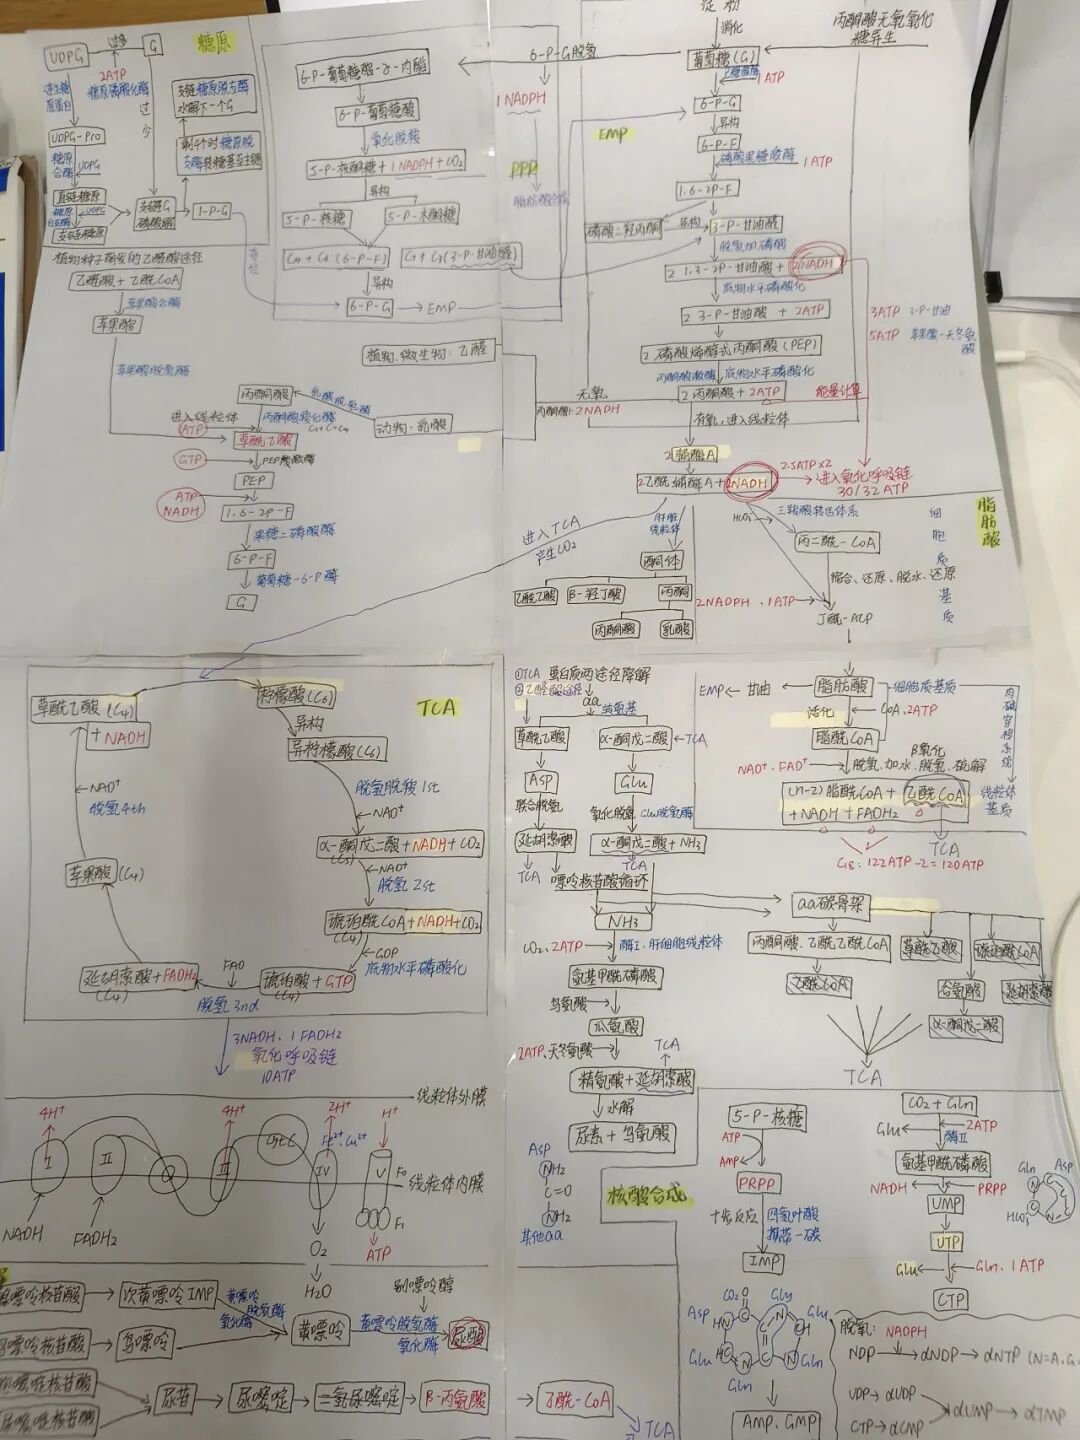 UDPG
过多
G
糖原
2ATP
糖原磷酸化酶
过少
支链糖原脱支酶
水解下一个G
UDPG-Pro
糖原合酶
UDPG
直链糖原
UDPG
支链糖原
支链G
磷酸解
1-P-G
剩4个时糖原脱
支酶转糖基至主链
植物种子萌发的乙醛酸途径
乙醛酸+乙酰CoA
苹果酸合酶
苹果酸
苹果酸脱氢酶
6-P-葡萄糖酸-δ-内酯
6-P-葡萄糖酸
氧化脱羧
5-P-核酮糖+1NADPH+CO2
异构
5-P-核糖
5-P-木酮糖
C4+C6(6-P-F)
C7+C3(3-P-甘油醛)
异构
6-P-G
EMP
6-P-G脱氢
1NADPH
PPP
植物、微生物:乙醛
丙酮酸
乳酸脱氢酶
动物:乳酸
进入线粒体
丙酮酸羧化酶
C3+C=C4
ATP
草酰乙酸
GTP
PEP羧激酶
PEP
ATP
NADH
1.6-2P-F
果糖二磷酸酶
6-P-F
葡萄糖-6-P酶
G
淀粉
消化
丙酮酸无氧氧化
糖异生
葡萄糖(G)
己糖激酶
1ATP
6-P-G
异构
EMP
6-P-F
磷酸果糖激酶
1ATP
1.6-2P-F
磷酸二羟丙酮
异构
3-P-甘油醛
脱氢加磷酸
2 1.3-2P-甘油酸+2NADH
底物水平磷酸化
2 3-P-甘油酸+2ATP
2 磷酸烯醇式丙酮酸(PEP)
丙酮酸激酶
底物水平磷酸化
2丙酮酸+2ATP
能量计算
3ATP 3-P-甘油
5ATP 苹果酸-天冬氨酸
无氧
丙酮酸+2NADH
有氧,进入线粒体
2辅酶A
2乙酰辅酶A+2NADH
2.5ATP×2
进入氧化呼吸链
30/32ATP
进入TCA
产生CO2
肝脏
线粒体
酮体
乙酰乙酸
β-羟丁酸
丙酮
丙酮酸
乳酸
HCO3-
三羧酸转运体系
丙二酰-CoA
缩合、还原、脱水、还原
2NADPH、1ATP
丁酰-ACP
脂肪酸
细胞质基质
TCA
草酰乙酸(C4)
+NADH
柠檬酸(C6)
异构
异柠檬酸(C6)
脱氢脱羧1st
NAD+
α-酮戊二酸+NADH+CO2
(C5)
NAD+
脱氢2st
琥珀酰CoA+NADH+CO2
(C4)
GDP
底物水平磷酸化
琥珀酸+GTP
(C4)
FAD
脱氢3nd
延胡索酸+FADH2
(C4)
苹果酸(C4)
NAD+
脱氢4th
3NADH、1FADH2
氧化呼吸链
10ATP
①TCA
②乙醛酸途径
蛋白质两途径降解
aa
转氨基
草酰乙酸
α-酮戊二酸
TCA
Asp
Glu
联合脱氨
氧化脱氨
Glu脱氢酶
延胡索酸
α-酮戊二酸+NH3
TCA
TCA
嘌呤核苷酸循环
NH3
CO2、2ATP
酶I、肝细胞线粒体
氨基甲酰磷酸
鸟氨酸
瓜氨酸
2ATP、天冬氨酸
TCA
精氨酸+延胡索酸
水解
尿素+鸟氨酸
Asp
NH2
C=O
NH2
其他aa
EMP
甘油
脂肪酸
细胞质基质
活化
CoA、2ATP
脂酰CoA
β氧化
NAD+、FAD+
脱氢、加水、脱氢、硫解
(n-2)脂酰CoA+乙酰CoA
+NADH+FADH2
TCA
C18:122ATP-2=120ATP
肉碱穿梭系统
线粒体
基质
aa碳骨架
丙酮酸、乙酰乙酰CoA
乙酰CoA
草酰乙酸
琥珀酰CoA
谷氨酸
延胡索酸
α-酮戊二酸
TCA
线粒体外膜
4H+
4H+
2H+
H+
CytC
Fe2+、Cu2+
I
II
Q
III
IV
V
F0
F1
线粒体内膜
NADH
FADH2
O2
H2O
ATP
核酸合成
5-P-核糖
ATP
AMP
PRPP
十步反应
四氢叶酸
携带一碳
IMP
CO2
Gly
Asp
Glu
Gln
Gln
AMP、GMP
CO2+Gln
Glu
2ATP
酶II
氨基甲酰磷酸
NADH
PRPP
UMP
UTP
Glu
Gln、1ATP
CTP
Gln
Asp
HCO3-
脱氧:
NADPH
NDP→dNDP→dNTP(N=A、G
UDP→dUDP
CTP→dCMP
dUMP→dTMP
嘌呤核苷酸
次黄嘌呤IMP
黄嘌呤
脱氢酶
氧化酶
别嘌呤醇
嘌呤核苷酸
鸟嘌呤
黄嘌呤
黄嘌呤脱氢酶
氧化酶
尿酸
嘧啶核苷酸
尿嘧啶核苷酸
尿苷
尿嘧啶
二氢尿嘧啶
β-丙氨酸
乙酰-CoA
TCA